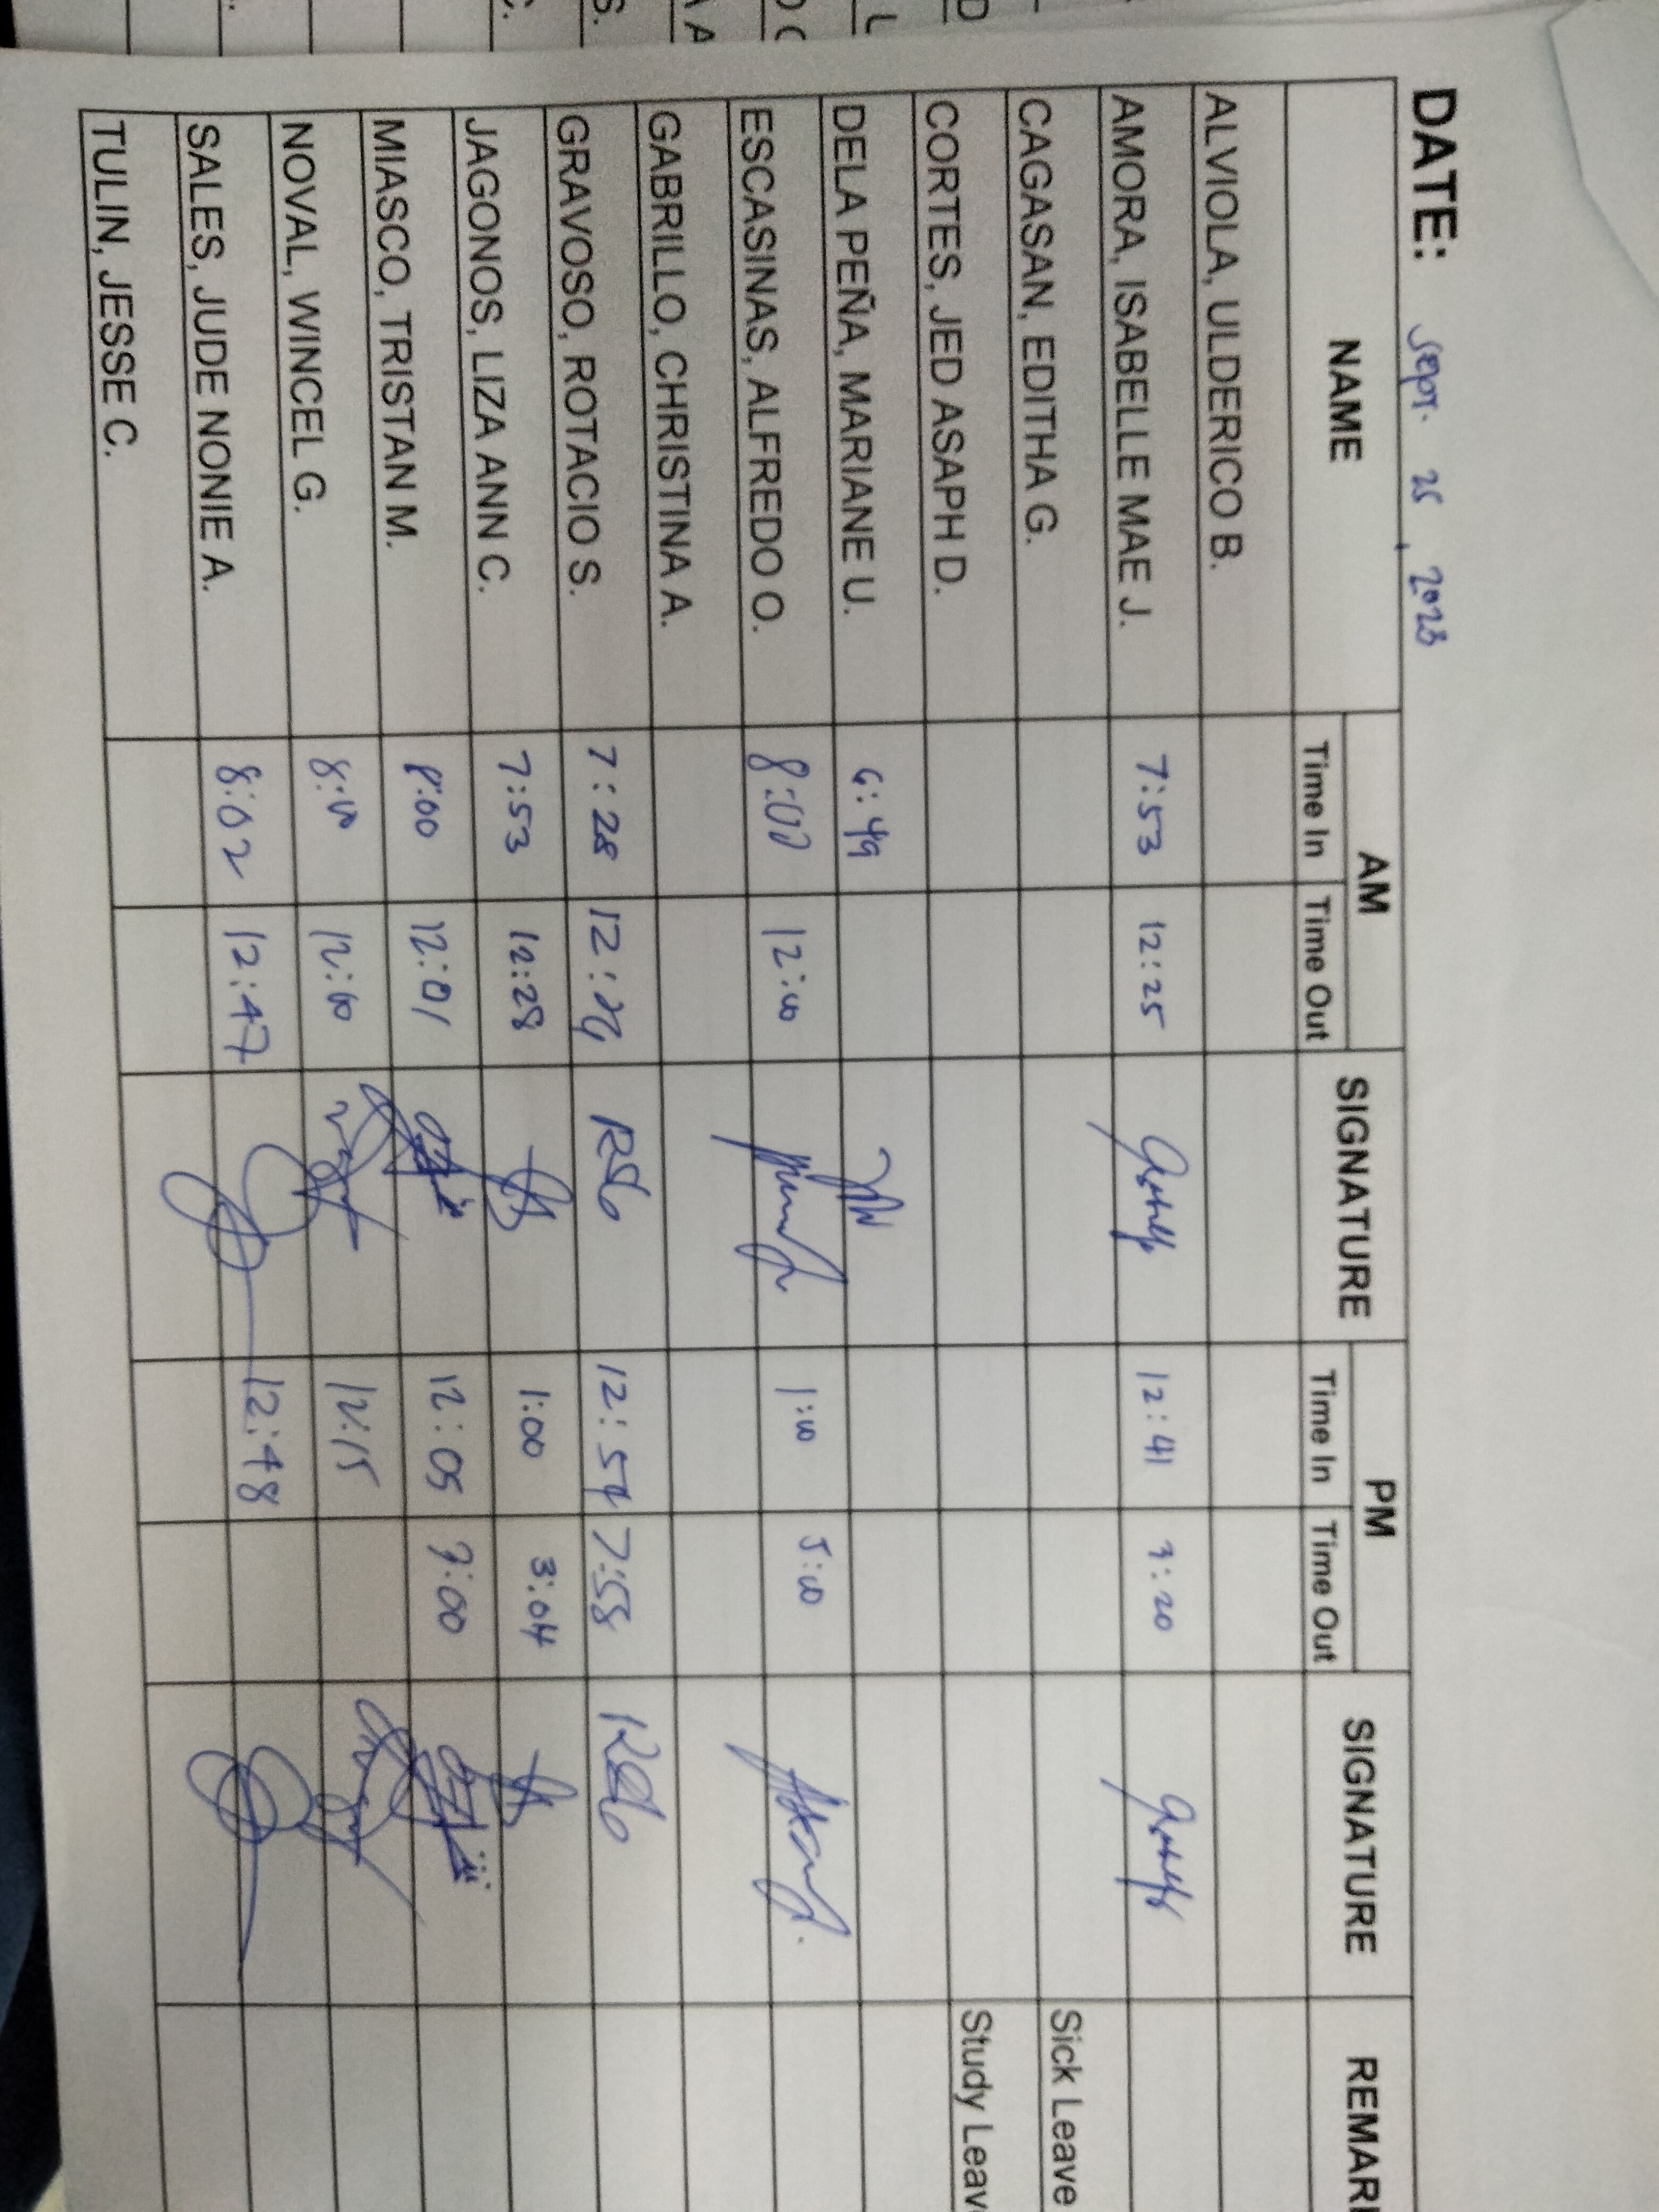 DATE: Sept. 25, 2023
NAME AM SIGNATURE PM SIGNATURE REMAR
Time In Time Out Time In Time Out
ALVIOLA, ULDERICO B.
AMORA, ISABELLE MAE J. 7:53 12:25 12:41 7:20
CAGASAN, EDITHA G. Sick Leave
CORTES, JED ASAPH D. Study Leav
DELA PEÑA, MARIANE U. 6:49
ESCASINAS, ALFREDO O. 8:00 12:00 1:00 5:00
GABRILLO, CHRISTINA A.
GRAVOSO, ROTACIO S. 7:28 RSG 12:54 7:58 RSG
JAGONOS, LIZA ANN C. 7:53 12:28 1:00 3:04
MIASCO, TRISTAN M. 8:00 12:01 12:05 7:00
NOVAL, WINCEL G. 8:00 12:10 12:15
SALES, JUDE NONIE A. 8:02 12:47 12:48
TULIN, JESSE C.